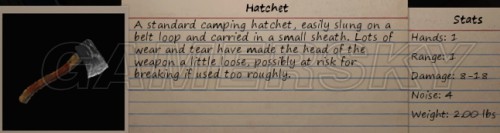 Hatchet
A standard camping hatchet, easily slung on a
belt loop and carried in a small sheath. Lots of
wear and tear have made the head of the
weapon a little loose, possibly at risk for
breaking if used too roughly.
Stats
Hands: 1
Range: 1
Damage: 8-18
Noise: 4
Weight: 2.00 lbs
GAMERSKY